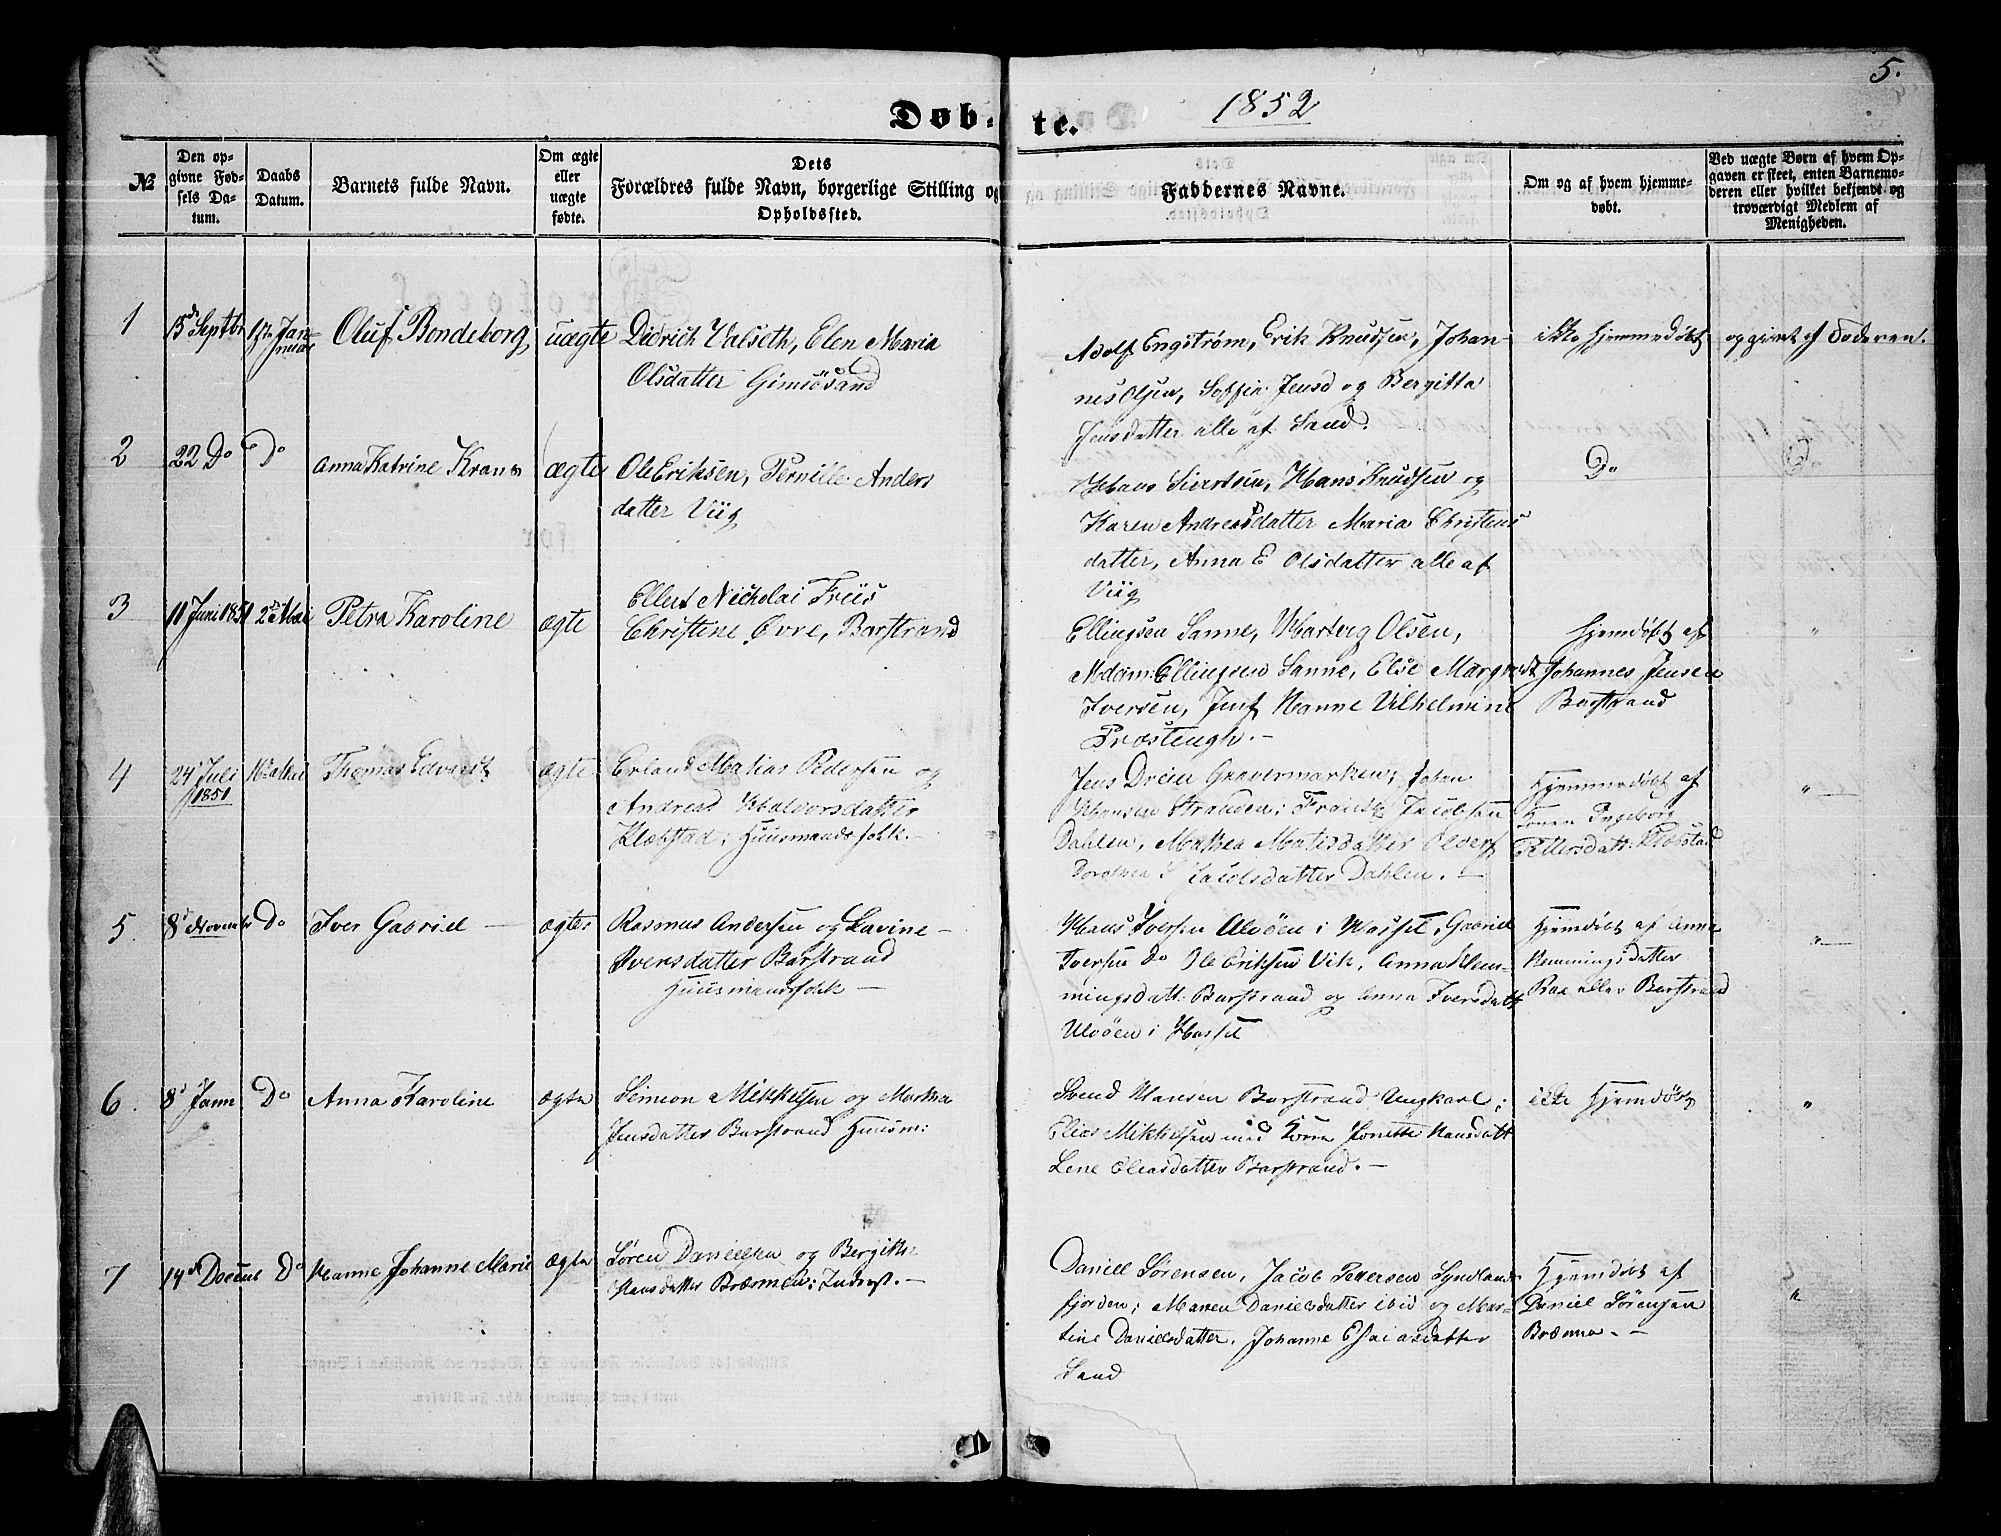 5.
Døb- te. 1852
№
Den op-
givne Fød-
sels Da-
tum.
Daabs
Datum.
Barnets fulde Navn.
Om ægte
eller
uægte
fødte.
Dets
Forældres fulde Navn, borgerlige Stilling og
Opholdssted.
Faddernes Navne.
Om og af hvem hjemme-
døbt.
Ved uægte Børn af hvem Op-
gaven er skeet, enten Barnemo-
deren eller hvilket bekjendt og
troværdigt Medlem af
Menigheden.
1
Septbr
Oluf Bondeborg
uægte
Didrich Valseth, Elen Maria
Olsdatter Gimsösand
Adolf Engström, Erik Knudsen, Johan-
nes Olsen, Soffia Jensd og Bergitta
Jensdatter alle af Sand.
ikke hjemmedøbt
opgivet af Foderen.
2
22 Do
Do
Anna Katrine Krans
ægte
Ole Eriksen, Pernille Anders
datter Viig
Hans Sivertsen, Hans Knudsen og
Karen Andreasdatter Maria Christens
datter, Anna E Olsdatter alle af
Viig
Do
Do
3
11 Juni 1851
2 Mai
Petra Karoline
ægte
Ellert Nicholai Friis
Christine Øvre, Barstrand
Ellingsen Sanne, Hartvig Olsen,
Madam: Ellingsen Sanne, Else Margredt
Iversen, Jmf Hanne Vilhelmine
Hjemdøbt af
Johannes Jensen
Barstrand
"
4
24 Juli
1851
Thomas Edvardt
ægte
Erland Matias Pedersen og
Andrea Halvorsdatter
Klæbstad; Huusmandsfolk.-
Jens Dreier Gravermarken; Johan
Hansen Stranden; Frants Jacobsen
Dahlen, Mathea Matisdatter
Dorothea S Jacobsdatter Dahlen. -
Hjemmedøbt af
Ingeborg
Pettersdatt: Klæbstad
"
5.
8d Novembr
Do
Iver Gabriel -
ægte
Rasmus Andersen og Lavine -
Iversdatter Barstrand
Huusmandsfolk -
Hans Iversen Ulvöen i Hassel, Gabriel
Iversen Do Ole Eriksen Vik, Anna Hem-
mingsdatt: Barstrand og Anna Iversdatt
Ulvöen i Hassel
Hjemdøbt af Anne
Hemmingsdatter
Barstrand
"
6.
8d Jann
Do
Anna Karoline
ægte
Simeon Mikkelsen og Martha
Jensdatter Barstrand Huusm:
Svend Hansen Barstrand Ungkarl;
Elias Mikkelsen med Kone Jonette Hansdatt
Lene Eliasdatter Barstrand. -
ikke Hjemdøbt
"
7
14d Decembr
Do
Hanne Johanne Marie
ægte
Søren Danielsen og Bergitte
Hansdatter Bræmen; Inderst. -
Daniell Sørensen, Jacob Pettersen Syndlands
fjorden; Maren Danielsdatter ibid og Mar-
tine Danielsdatter, Johanne Esaiasdatter
Sand
Hjemdöbt af
Daniel Sørensen
Bræmna. -
"